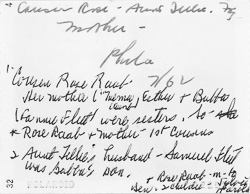 4
Cousin Rose - Aunt Tillie. By
Mother -
Phila
7/62
1. Cousin Rose Raab
Her mother (Mema, Esther & Bubba
(Fannie Fliet) were sisters. So
* Rose Raab & mother - 1st Cousins
2 Aunt Tillie's husband - Samuel Fliet
was Bubba's son.
* Rose Raab - m-to
Ben. 2 children
32
POLAROID